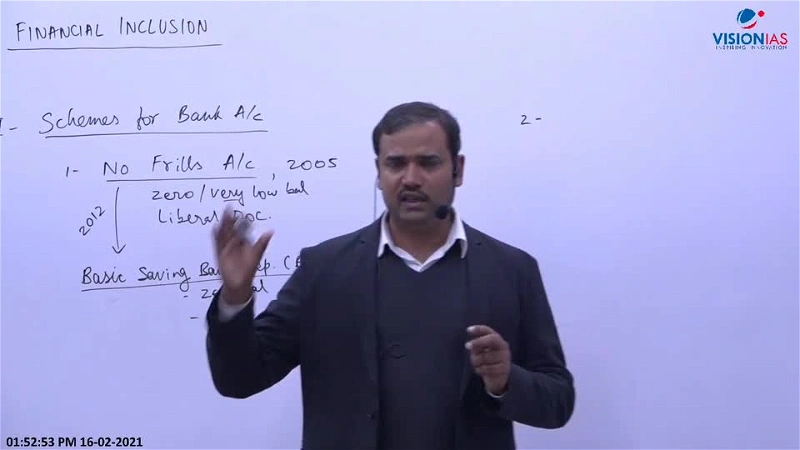 FINANCIAL INCLUSION
VISIONIAS
INSPIRING INNOVATION
I- Schemes for Bank A/c
2-
1- No Frills A/c, 2005
zero/very low bal
Liberal Doc.
2012
Basic Saving Dep. (
01:52:53 PM 16-02-2021